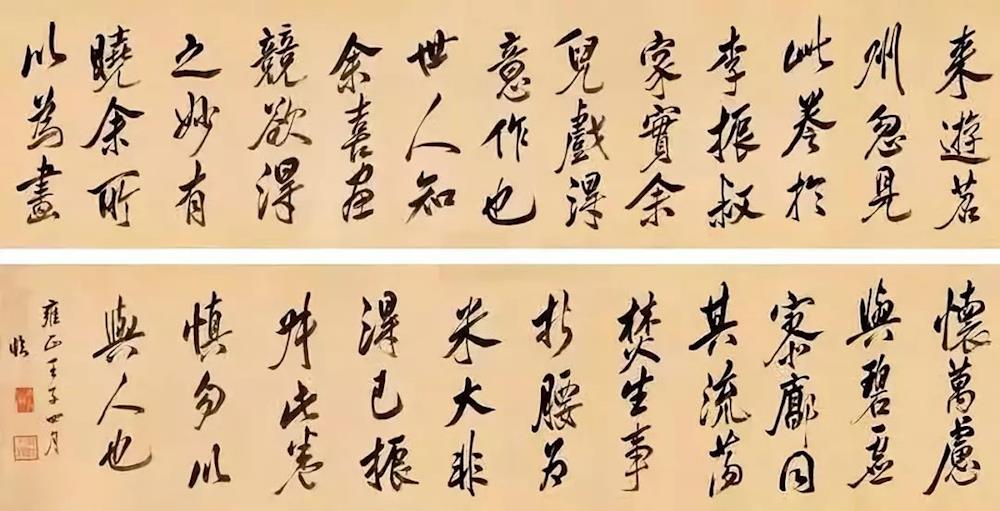 来遊苕
州忽見
此卷於
李振叔
家實余
兒戲得
意作也
世人知
余喜画
競欲得
之妙有
曉余所
以為畫
懷萬慮
與碧虛
寥廓同
其流蕩
焚生事
折腰為
米大非
得已振
叔此卷
慎勿以
與人也
雍正壬子四月
臨